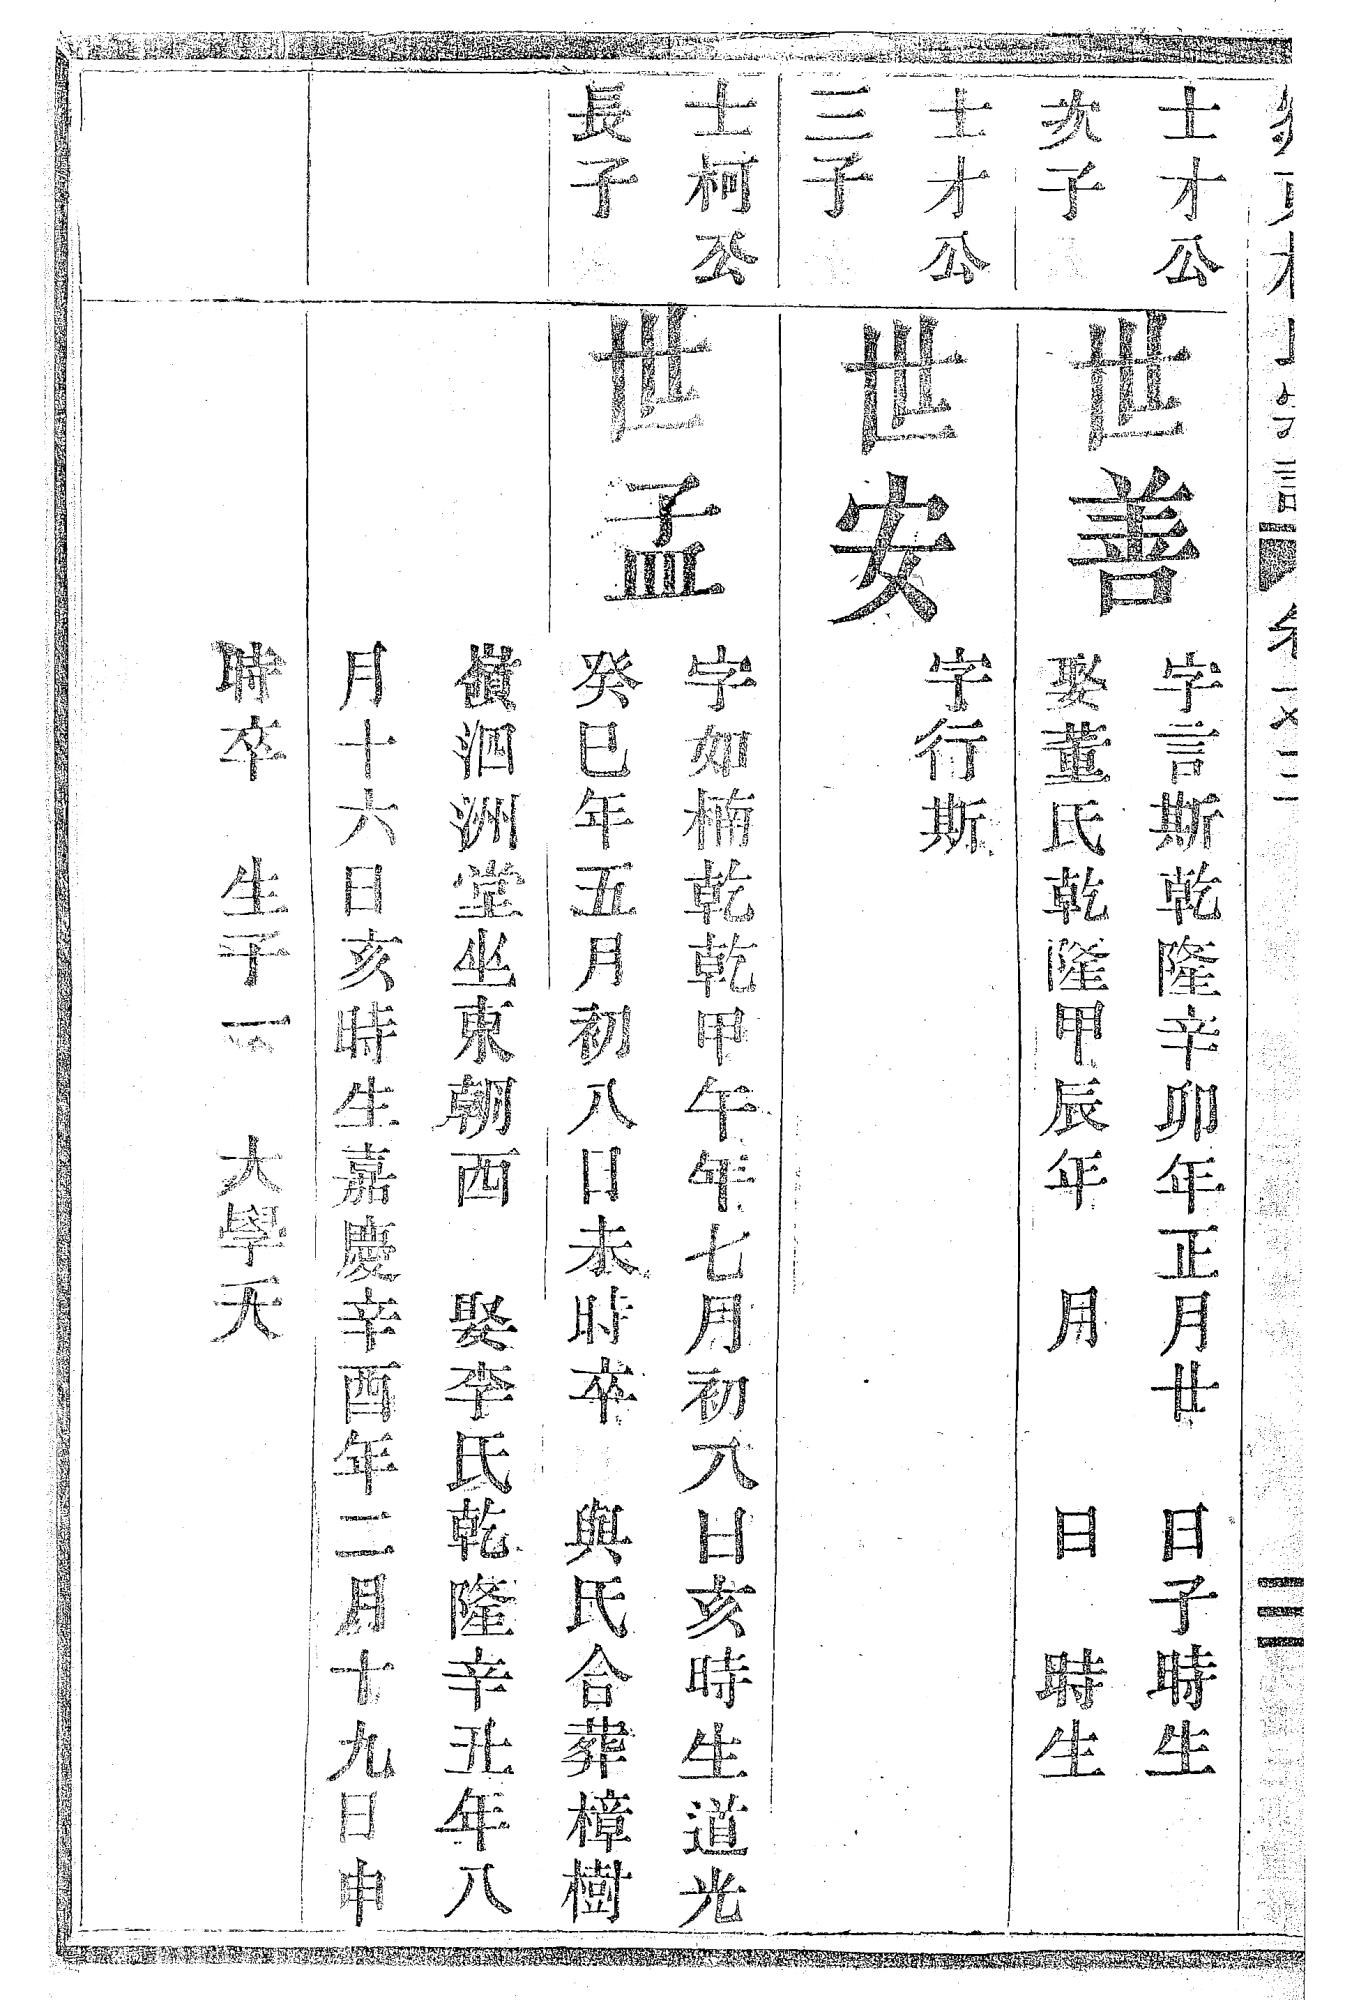 士才公
次子
世善
字言斯乾隆辛卯年正月廿 日子時生
娶董氏乾隆甲辰年 月 日 時生
士才公
三子
世安
字行斯
士柯公
長子
世孟
字如楠乾乾甲午年七月初八日亥時生道光
癸巳年五月初八日未時卒 與氏合葬樟樹
嶺泗洲堂坐東朝西 娶李氏乾隆辛丑年八
月十六日亥時生嘉慶辛酉年二月十九日申
時卒 生子一 大學天
三